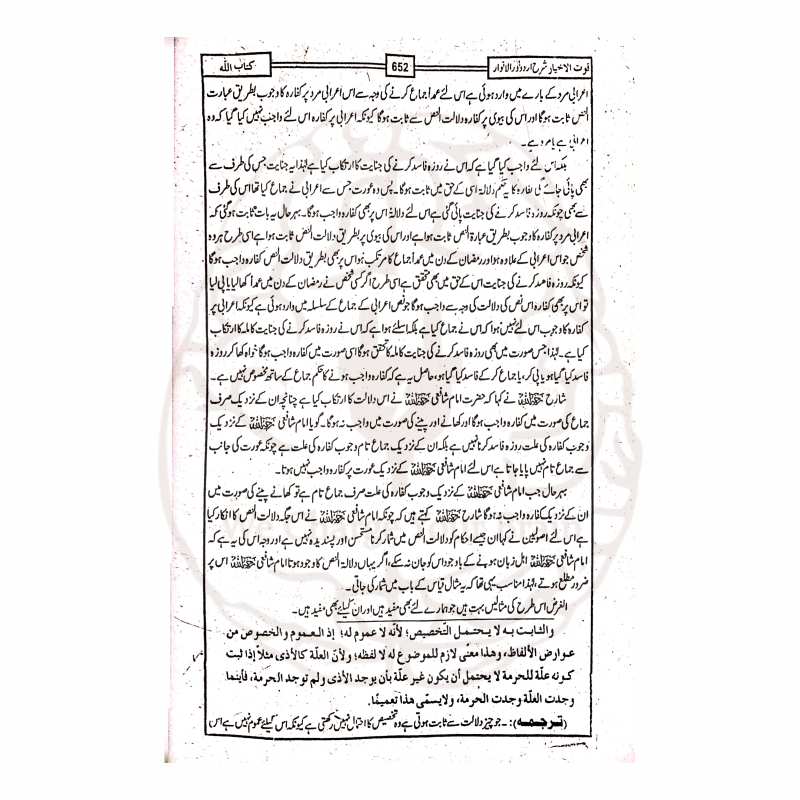 قوت الاخیار شرح اردو نور الانوار 652 کتاب اللہ
اعرابی مرد کے بارے میں وارد ہوئی ہے اس لئے عمداً جماع کرنے کی وجہ سے اس اعرابی مرد پر کفارہ کا وجوب بطریق عبارت
النص ثابت ہوگا اور اس کی بیوی پر کفارہ دلالت النص سے ثابت ہوگا کیونکہ اعرابی پر کفارہ اس لئے واجب نہیں کیا گیا کہ وہ
اعرابی ہے یا مرد ہے۔
بلکہ اس لئے واجب کیا گیا ہے کہ اس نے روزہ فاسد کرنے کی جنایت کا ارتکاب کیا ہے لہٰذا یہ جنایت جس کی طرف سے
بھی پائی جائے گی کفارہ کا یہ حکم دلالۃً اسی کے حق میں ثابت ہوگا۔ پس وہ عورت جس سے اعرابی نے جماع کیا تھا اس کی طرف
سے بھی چونکہ روزہ فاسد کرنے کی جنایت پائی گئی ہے اس لئے دلالۃً اس پر بھی کفارہ واجب ہوگا۔ بہرحال یہ بات ثابت ہوگئی کہ
اعرابی مرد پر کفارہ کا وجوب بطریق عبارۃ النص ثابت ہوا ہے اور اس کی بیوی پر بطریق دلالت النص ثابت ہوا ہے اسی طرح ہر وہ
شخص جو اس اعرابی کے علاوہ ہو اور رمضان کے دن میں عمداً جماع کا مرتکب ہو اس پر بھی بطریق دلالت النص کفارہ واجب ہوگا
کیونکہ روزہ فاسد کرنے کی جنایت اس کے حق میں بھی متحقق ہے اسی طرح اگر کسی شخص نے رمضان کے دن میں عمداً کھا لیا یا پی لیا
تو اس پر بھی کفارہ اس نص کی دلالت کی وجہ سے واجب ہوگا جو نص اعرابی کے جماع کے سلسلہ میں وارد ہوئی ہے کیونکہ اعرابی پر
کفارہ کا وجوب اس لئے نہیں ہوا کہ اس نے جماع کیا ہے بلکہ اسلئے ہوا ہے کہ اس نے روزہ فاسد کرنے کی جنایت کاملہ کا ارتکاب
کیا ہے۔ لہٰذا جس صورت میں بھی روزہ فاسد کرنے کی جنایت کاملہ کا تحقق ہوگا اسی صورت میں کفارہ واجب ہوگا خواہ کھا کر روزہ
فاسد کیا گیا ہو یا پی کر، یا جماع کر کے فاسد کیا گیا ہو، حاصل یہ ہے کہ کفارہ واجب ہونے کا حکم جماع کے ساتھ مخصوص نہیں ہے۔
شارح رحمہ اللہ نے کہا کہ حضرت امام شافعی رحمہ اللہ نے اس دلالت کا ارتکاب کیا ہے چنانچہ ان کے نزدیک صرف
جماع کی صورت میں کفارہ واجب ہوگا اور کھانے اور پینے کی صورت میں واجب نہ ہوگا۔ گویا امام شافعی رحمہ اللہ کے نزدیک
وجوب کفارہ کی علت روزہ فاسد کرنا نہیں ہے بلکہ ان کے نزدیک جماع تام وجوب کفارہ کی علت ہے چونکہ عورت کی جانب
سے جماع تام نہیں پایا جاتا ہے اس لئے امام شافعی رحمہ اللہ کے نزدیک عورت پر کفارہ واجب نہیں ہوتا۔
بہرحال جب امام شافعی رحمہ اللہ کے نزدیک وجوب کفارہ کی علت صرف جماع تام ہے تو کھانے پینے کی صورت میں
ان کے نزدیک کفارہ واجب نہ ہوگا شارح رحمہ اللہ کہتے ہیں کہ چونکہ امام شافعی رحمہ اللہ نے اس جگہ دلالت النص کا انکار کیا
ہے اس لئے اصولیین نے کہا ان جیسے احکام کو دلالت النص میں شمار کرنا مستحسن اور پسندیدہ نہیں ہے اور وجہ اس کی یہ ہے کہ
امام شافعی رحمہ اللہ اہل زبان ہونے کے باوجود اس کو جان نہ سکے، اگر یہاں دلالۃ النص کا وجود ہوتا امام شافعی رحمہ اللہ اس پر
ضرور مطلع ہوتے، لہٰذا مناسب یہی تھا کہ یہ مثال قیاس کے باب میں شمار کی جاتی۔
الغرض اس طرح کی مثالیں بہت ہیں جو ہمارے لئے بھی مفید ہیں اور ان کیلئے بھی مفید ہیں۔
والثابت به لا يحتمل التخصيص؛ لأنه لا عموم له؛ إذ العموم والخصوص من
عوارض الألفاظ، وهذا معنى لازم للموضوع له لا لفظه؛ ولأن العلة كالأذى مثلاً إذا ثبت
كونه علة للحرمة لا يحتمل أن يكون غير علة بأن يوجد الأذى ولم توجد الحرمة، فأينما
وجدت العلة وجدت الحرمة، ولا يسمى هذا تعميمًا.
(ترجمہ):۔ جو چیز دلالت سے ثابت ہوتی ہے وہ تخصیص کا احتمال نہیں رکھتی ہے کیونکہ اس کیلئے عموم نہیں ہے اس